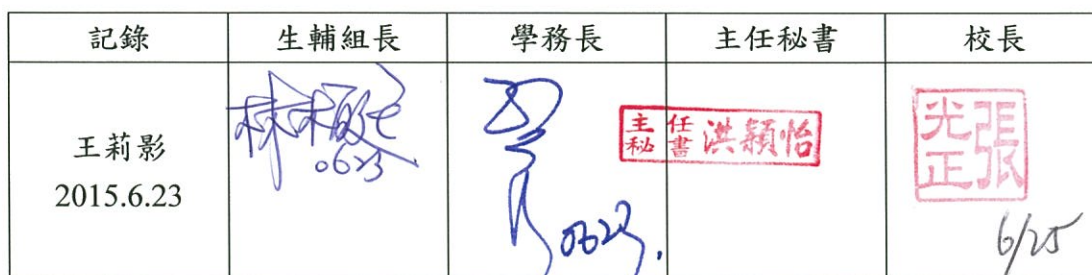 記錄 生輔組長 學務長 主任秘書 校長
王莉影
2015.6.23
0623
0623.
主任秘書 洪穎怡
張光正
6/25